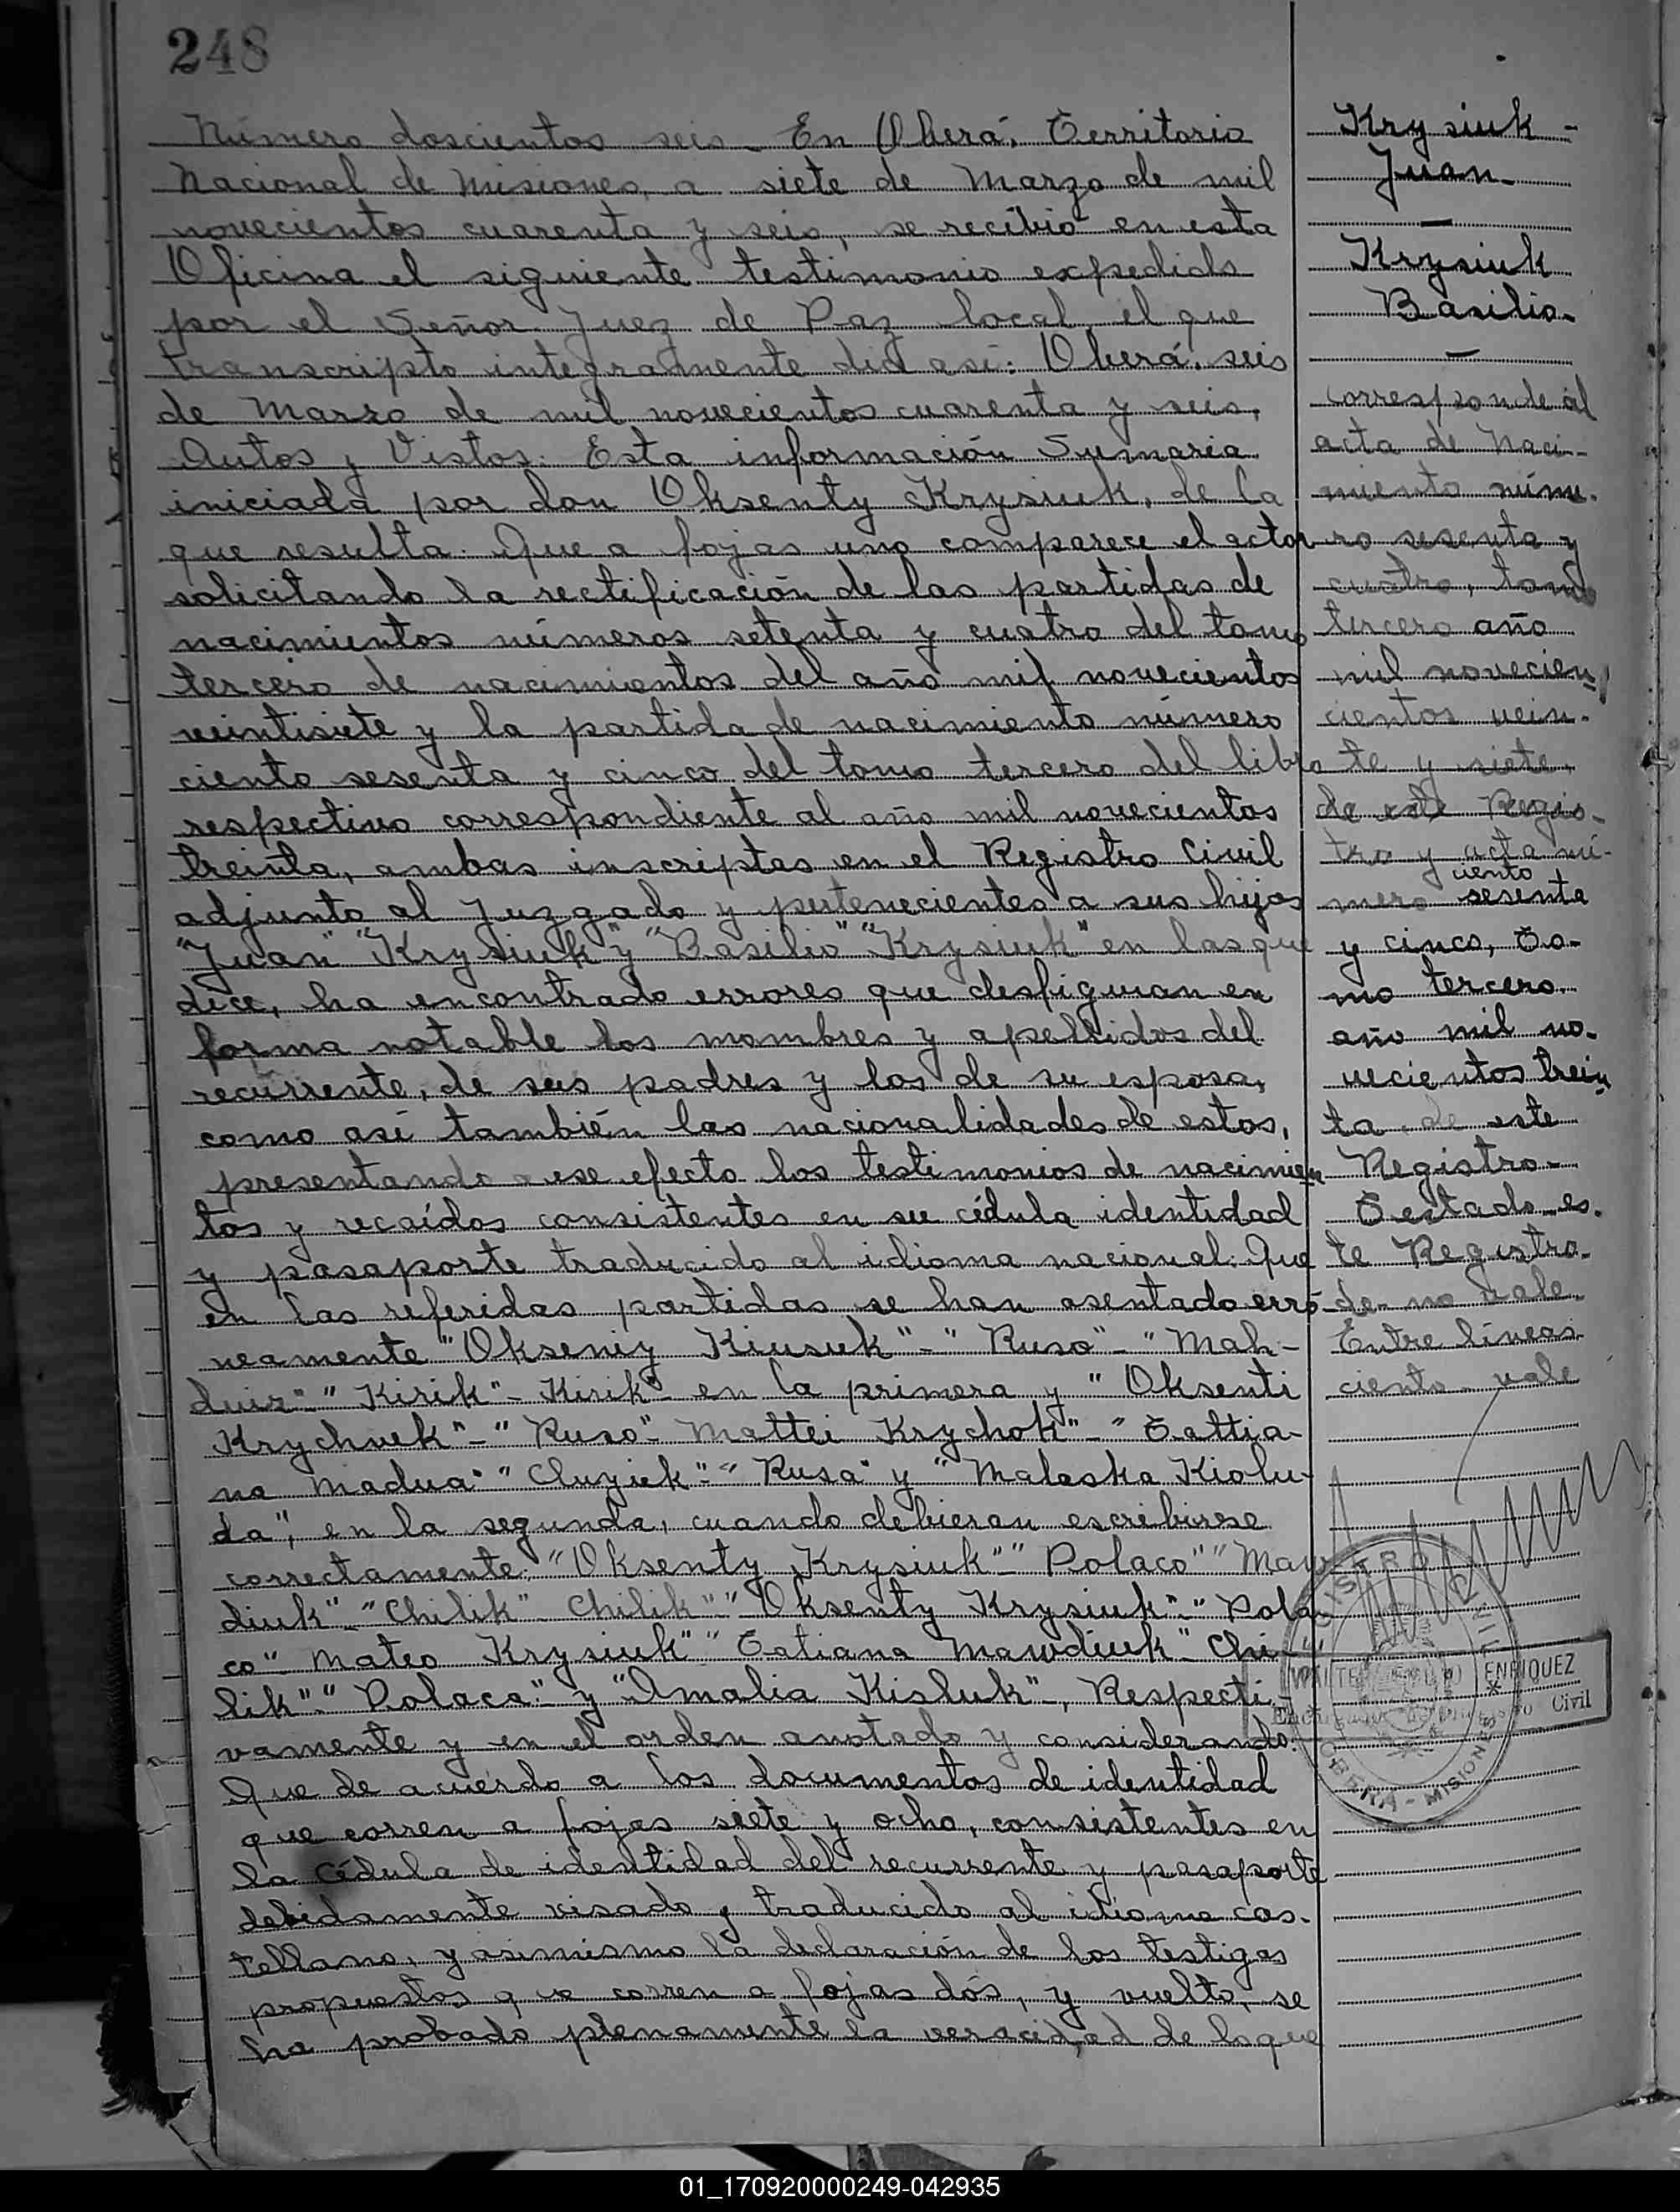 248
Número doscientos seis - En Oberá, Territorio
Nacional de Misiones, a siete de Marzo de mil
novecientos cuarenta y seis, se recibió en esta
Oficina el siguiente testimonio expedido
por el Señor Juez de Paz local, el que
transcripto integramente dice asi: Oberá, seis
de Marzo de mil novecientos cuarenta y seis,
Autos y Vistos: Esta información Sumaria
iniciada por don Oksenty Krysiuk, de la
que resulta: Que a fojas uno comparece el actor
solicitando la rectificación de las partidas de
nacimientos números setenta y cuatro del tomo
tercero de nacimientos del año mil novecientos
veintisiete y la partida de nacimiento número
ciento sesenta y cinco del tomo tercero del libro
respectivo correspondiente al año mil novecientos
treinta, ambas inscriptas en el Registro Civil
adjunto al Juzgado y pertenecientes a sus hijos
"Juan" "Krysiuk" y "Basilio" "Krysiuk" en las que
dice, ha encontrado errores que desfiguran en
forma notable los nombres y apellidos del
recurrente, de sus padres y los de su esposa,
como asi también las nacionalidades de estos,
presentando a ese efecto los testimonios de nacimien
tos y recaídos consistentes en su cédula identidad
y pasaporte traducido al idioma nacional: Que
en las referidas partidas se han asentado erró
neamente "Okseniy Kiusuk" - "Ruso" - "Mah-
duiz" - "Kirik" - Kirik" en la primera y "Oksenti
Krychuek" - "Ruso" - Mattei Krychok" - "Tattia-
na Madua" "Cluyiek" - "Rusa" y "Malaska Kiolu-
da", en la segunda, cuando debieran escribirse
correctamente: "Oksenty Krysiuk" - "Polaco" "Maw
diuk" - "Chilik" - Chilik" - "Oksenty Krysiuk" - "Pola-
co" - Mateo Krysiuk" - "Tatiana Mawdiuk" - Chi-
lik" - "Polaca" - y "Amalia Kisluk" -, Respecti-
vamente y en el orden anotado y considerando:
Que de acuerdo a los documentos de identidad
que corren a fojas siete y ocho, consistentes en
la Cédula de identidad del recurrente y pasaporte
debidamente visado y traducido al idioma cas-
tellano, y asimismo la declaración de los testigos
propuestos que corren a fojas dós, y vuelta, se
ha probado plenamente la veracidad de lo que
Krysiuk -
Juan -
Krysiuk
Basilio -
Corresponde al
acta de Naci-
miento núme-
ro sesenta y
cuatro, tomo
tercero año
mil novecien
cientos vein-
te y siete,
de este Regis-
tro y acta nú-
ciento
mero sesenta
y cinco, To-
mo tercero
año mil no-
vecientos trein
ta de este
Registro -
Testado es-
te Registro -
de - no vale.
Entre líneas
ciento - vale
REGISTRO CIVIL
WALTER ENRIQUEZ
Encargado Registro Civil
OBERA - MISIONES
01_170920000249-042935